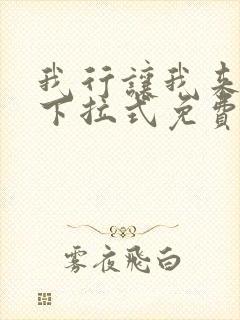 我行讓我來
下拉式免費
雾夜飛白